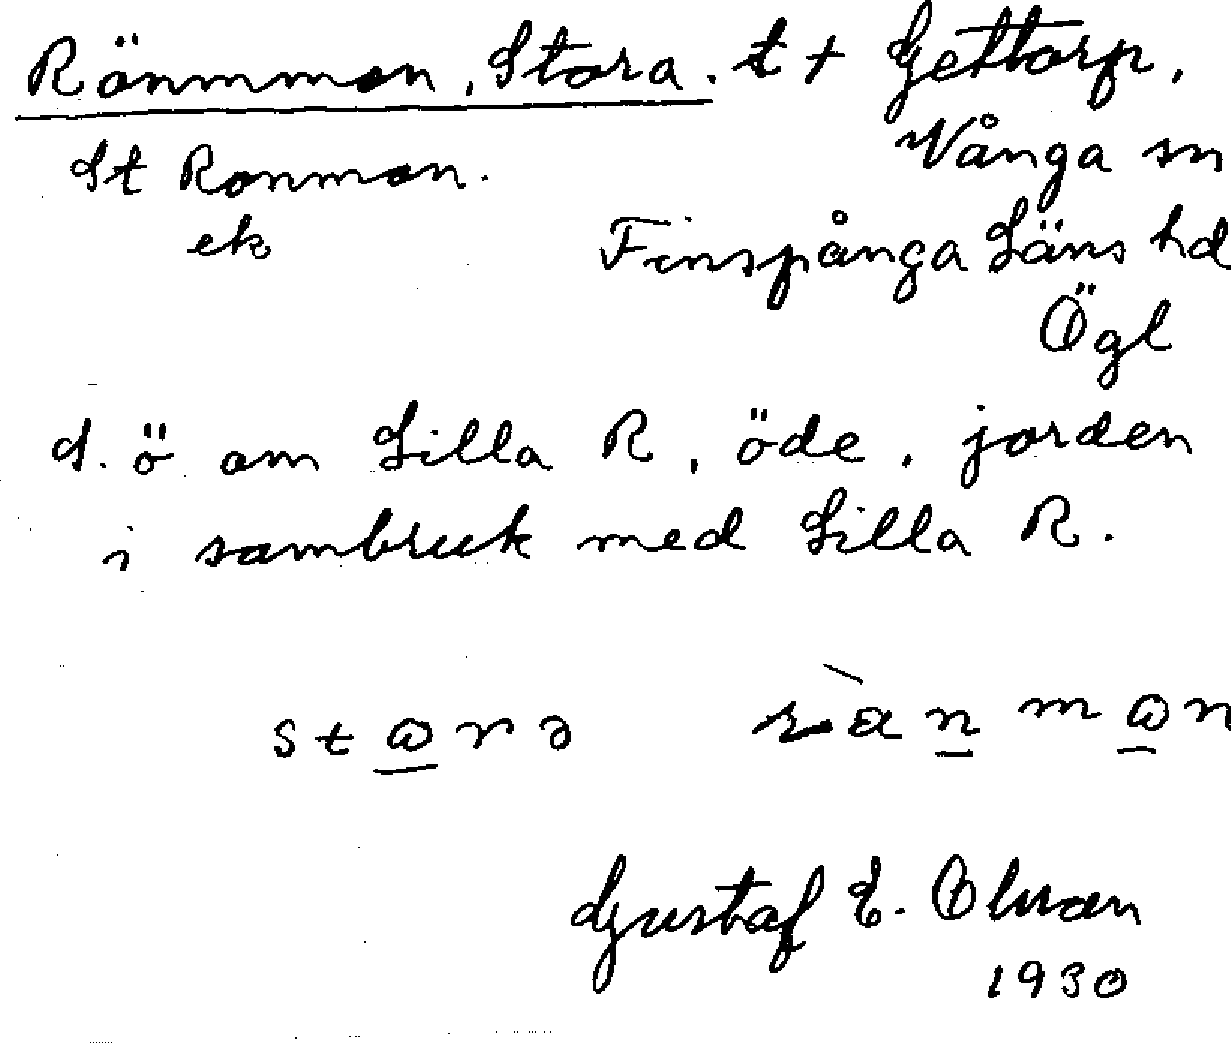 Rönnmon, Stora. t + Gettorp,
St Ronmon. Vånga sn
ek Finspånga Läns hd
Ögl
S. ö om Lilla R, öde, jorden
i sambruk med Lilla R.
Gustaf E. Olson
1930